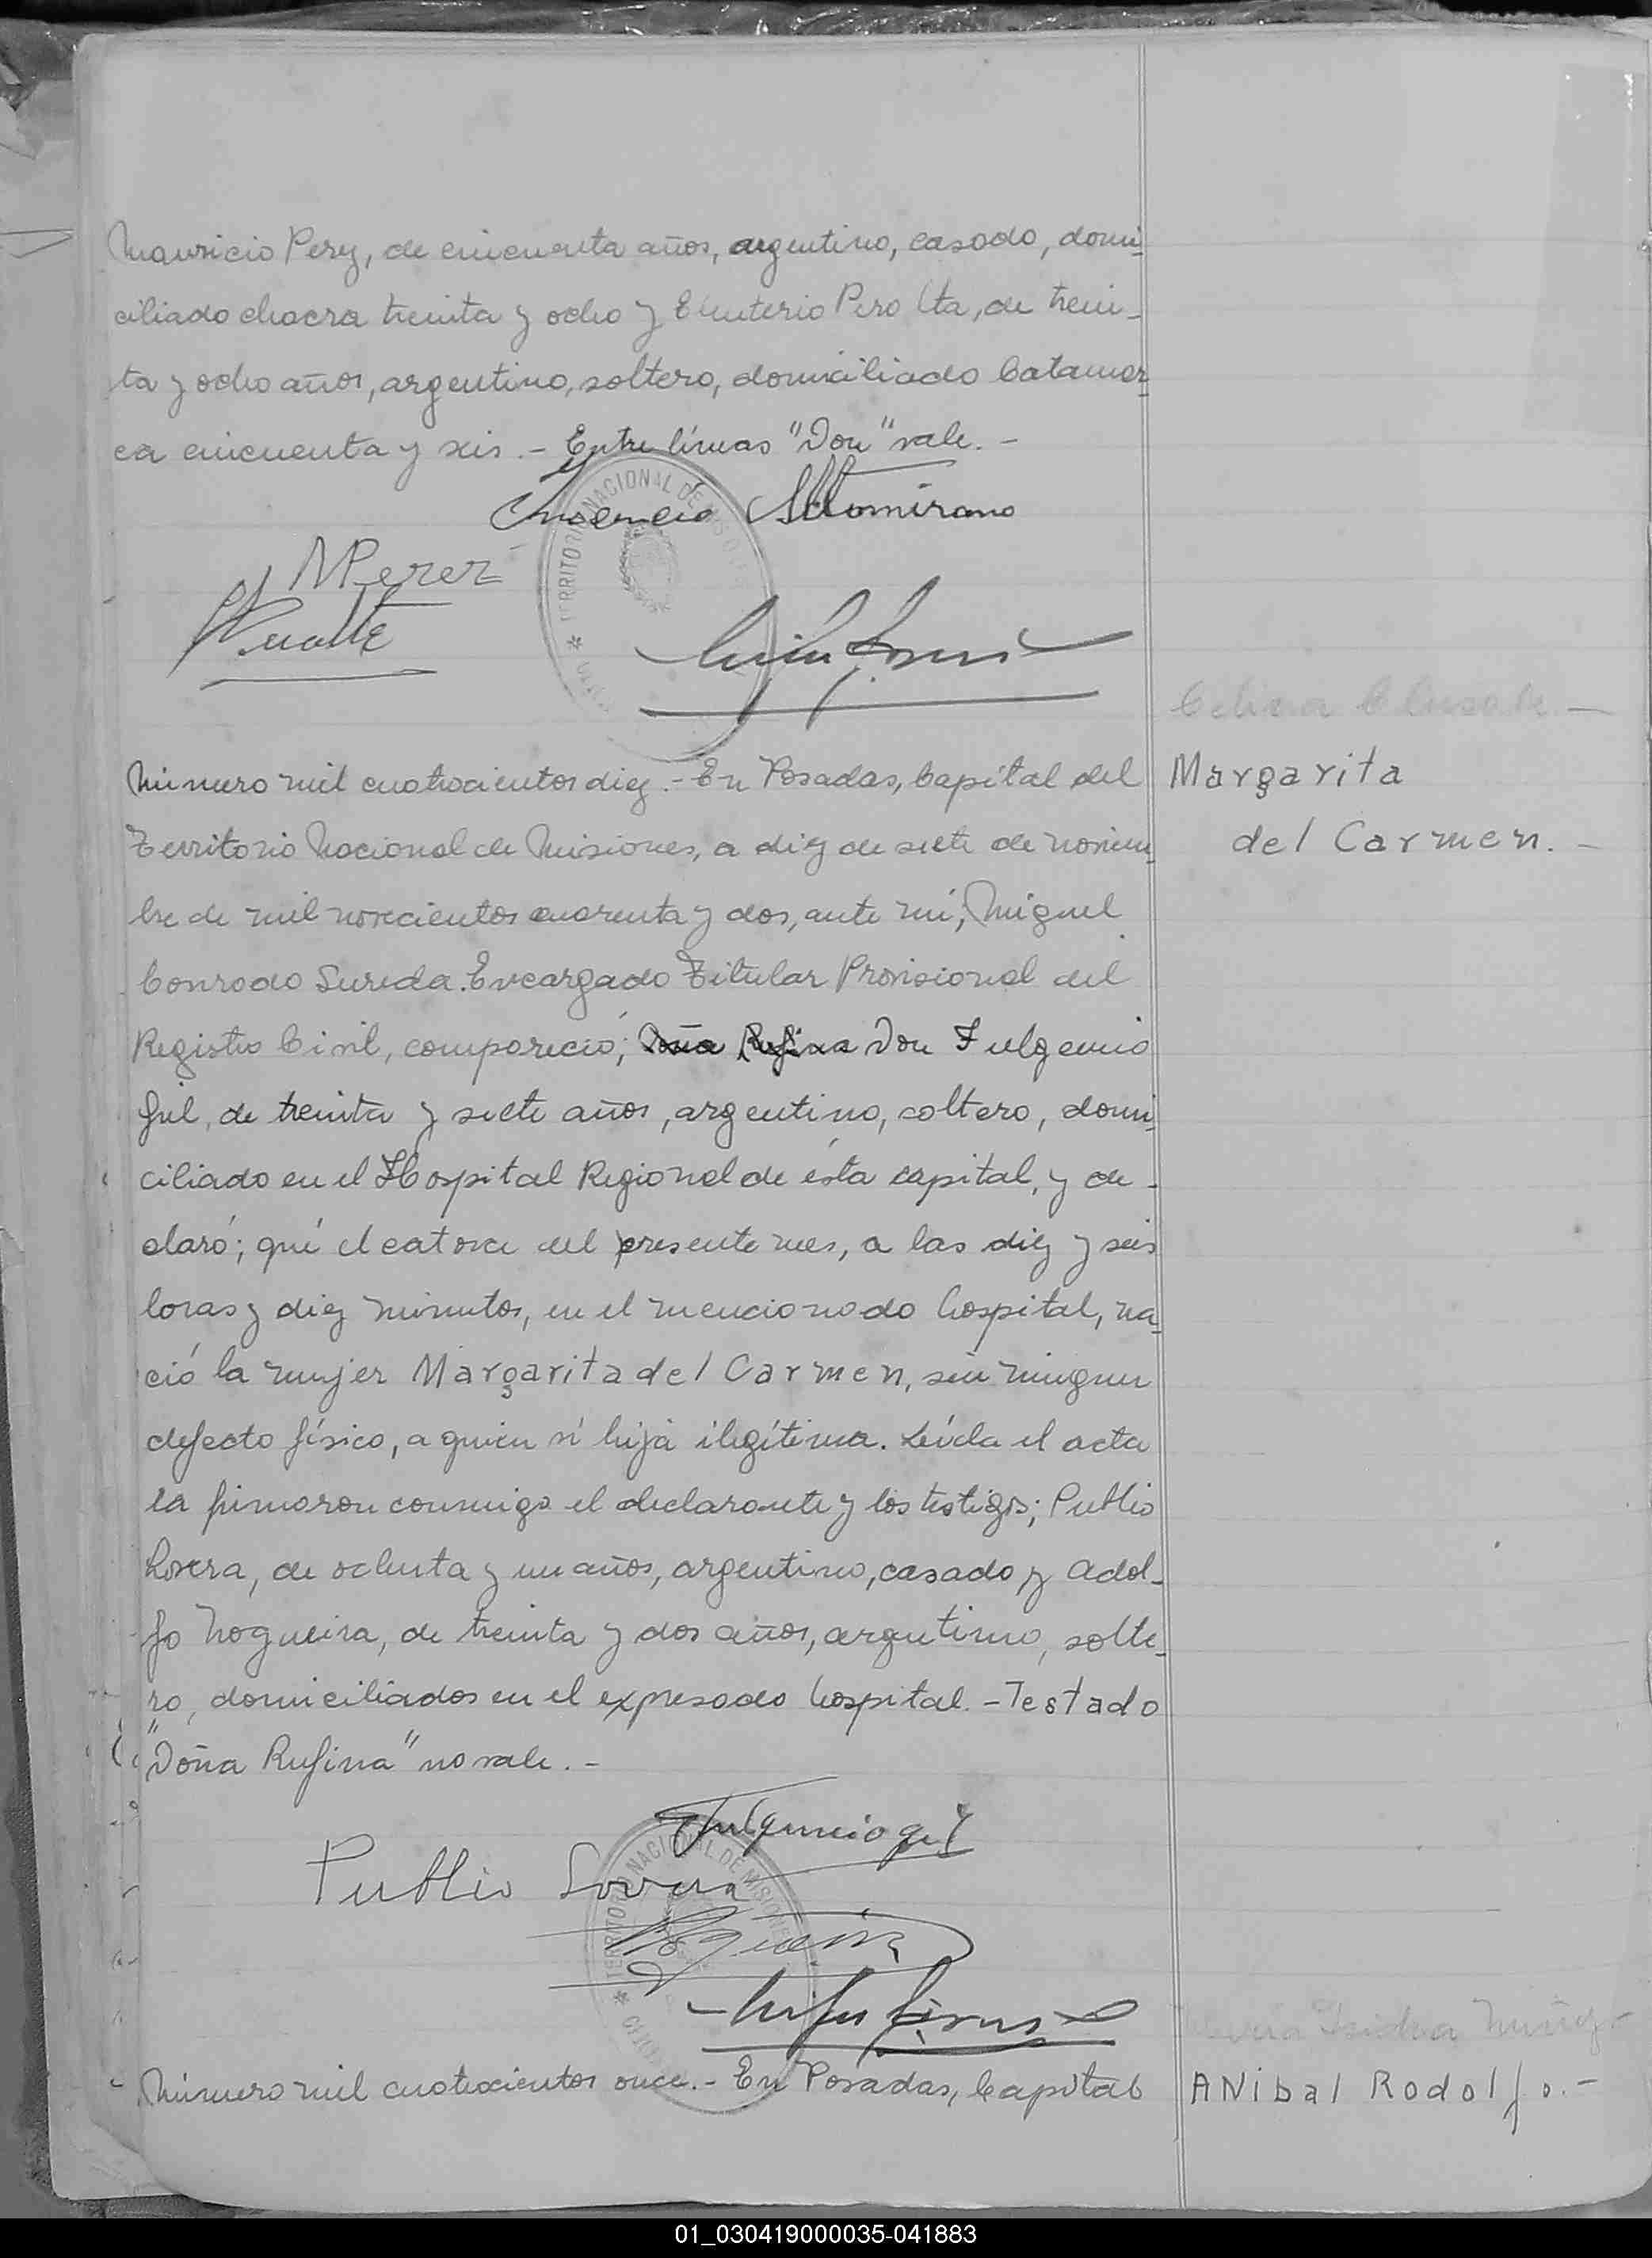 Mauricio Perez, de cincuenta años, argentino, casado, domi-
ciliado chacra treinta y ocho y Eleuterio Peralta, de trein-
ta y ocho años, argentino, soltero, domiciliado Catamar-
ca cincuenta y seis.- Entre líneas "Don" vale.-
Altamirano
MPerez
TERRITORIO NACIONAL DE MISIONES
Número mil cuatrocientos diez.- En Posadas, Capital del
Margarita
Territorio Nacional de Misiones, a diez de siete de noviem-
del Carmen.-
bre de mil novecientos cuarenta y dos, ante mí, Miguel
Conrado Sureda. Encargado Titular Provisional del
Registro Civil, compareció; Doña Rufina Don Fulgencio
Gil, de treinta y siete años, argentino, soltero, domi-
ciliado en el Hospital Regional de ésta capital, y de-
claró; qué el catorce del presente mes, a las diez y seis
horas y diez minutos, en el mencionado hospital, na-
ció la mujer Margarita del Carmen, sin ningun
defecto físico, a quien ví hija ilegítima. Leída el acta
la firmaron conmigo el declarante y los testigos; Publio
Lovera, de ochenta y un años, argentino, casado y Adol-
fo Nogueira, de treinta y dos años, argentino, solte-
ro, domiciliados en el expresado hospital.- Testado
"Doña Rufina" no vale.-
Fulgencio Gil
Publio Lovera
TERRITORIO NACIONAL DE MISIONES
Número mil cuatrocientos once.- En Posadas, Capital
ANibal Rodolfo.-
01_030419000035-041883